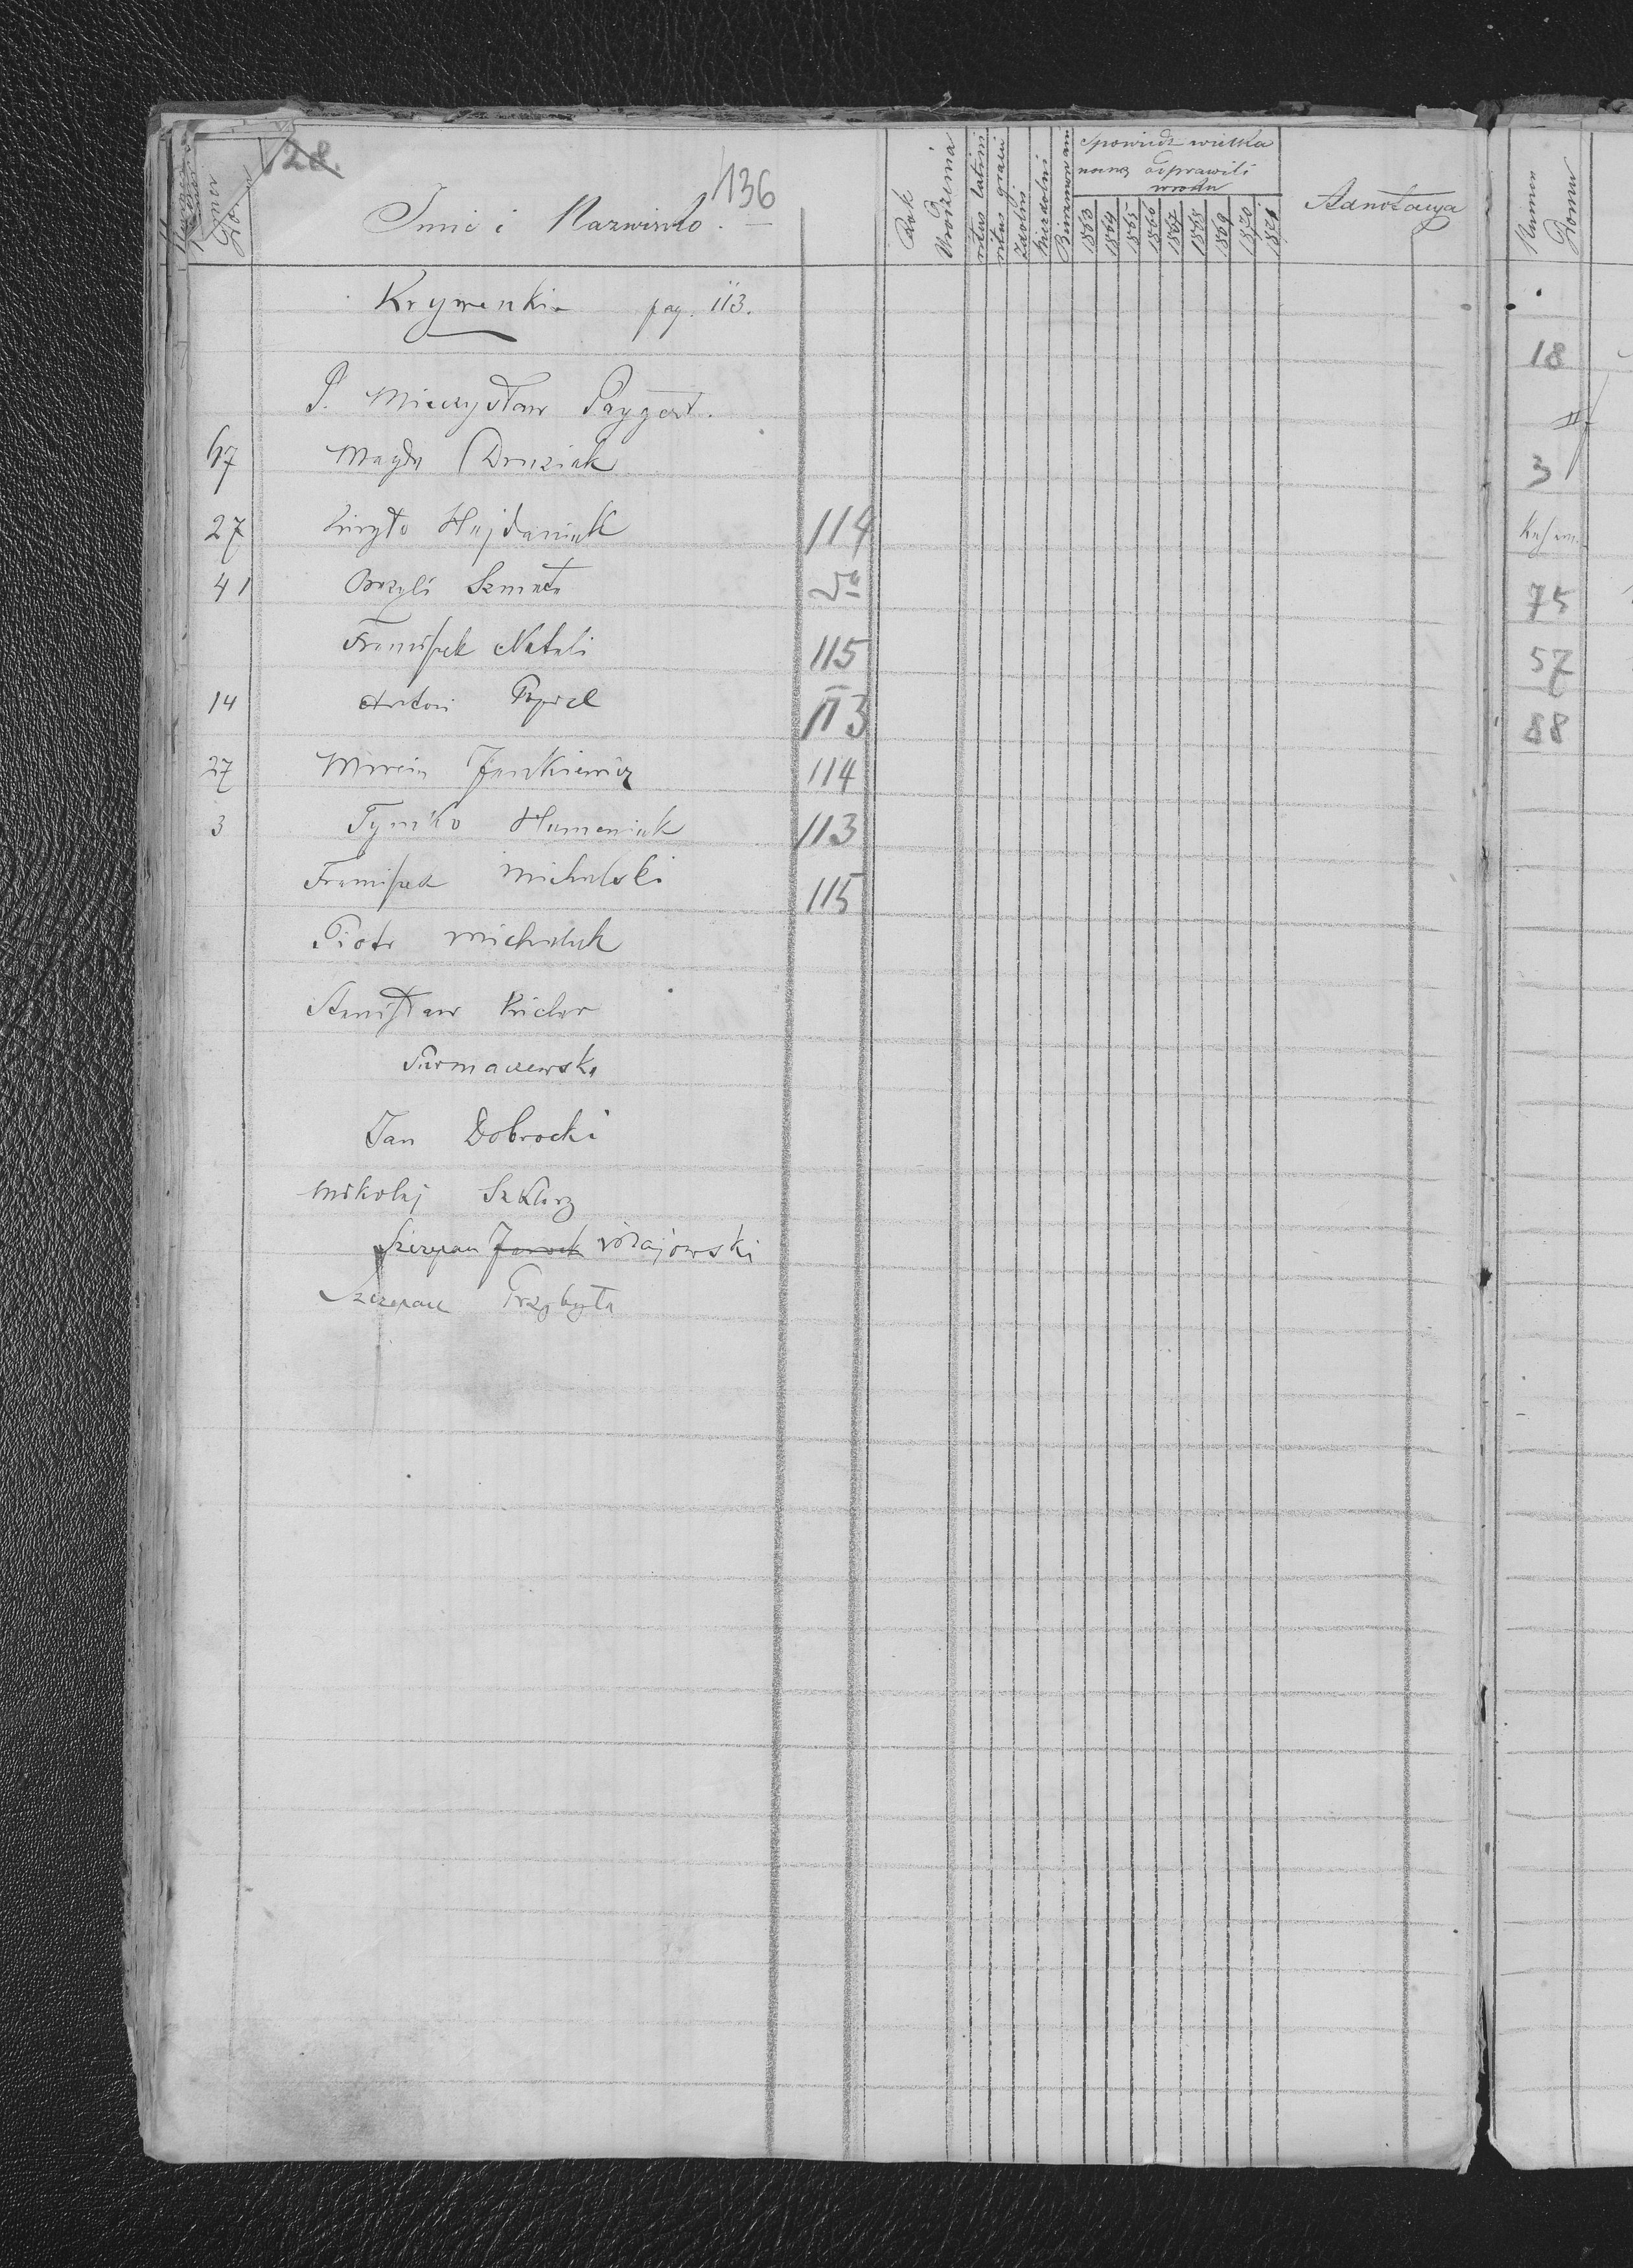 128.
136
Numer Domu
Imie i Nazwisko.
Rok Urodzenia
ritus latini
ritus graeci
zdolni
niezdolni
Bierzmowani
Spowiedz wielka
nocną odprawili
w roku
1863 1864 1865 1866 1867 1868 1869 1870 1871
Adnotacya
Numer Domu
Krzywenkie pag. 113.
P. Mieczysław Paygert.
67 Magda Druziak
27 Kiryło Hajdaniuk 114
41 Bazyli Szmata do
Franiszek Natali 115
14 Antoni Popiel 113
27 Marcin Jankiewicz 114
3 Tymko Humeniuk 113
Franiszek Michalski 115
Piotr Michaluk
Stanisław
Jan Dobrocki
Mikołaj Szklarz
Szczepan Janoch
Szczepan Przybyła
18
3
75
57
88